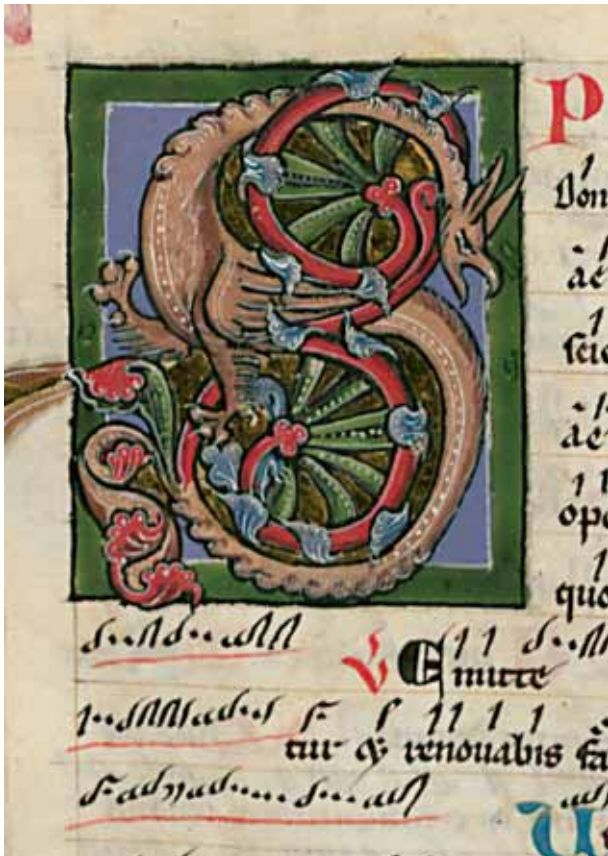 S P
Don
ae
scie
ae
ope
quo
V Emitte
tur et renouabis fa
U